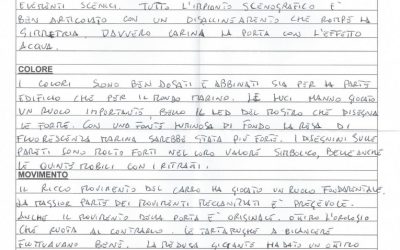 ELEMENTI SCENICI. TUTTO L'IMPIANTO SCENOGRAFICO È
BEN ARTICOLATO CON UN DISALLINEAMENTO CHE ROMPE LA
SIMMETRIA. DAVVERO CARINA LA PORTA CON L'EFFETTO
ACQUA.
COLORE
I COLORI SONO BEN DOSATI E ABBINATI SIA PER LA PARTE
EDIFICIO CHE PER IL MONDO MARINO. LE LUCI HANNO GIOCATO
UN RUOLO IMPORTANTE, BELLO IL LED DEL MOSTRO CHE DISEGNA
LE FORME. CON UNA FONTE LUMINOSA DI FONDO LA RESA DI
FLUORESCENZA MARINA SAREBBE STATA PIÙ FORTE. I DISEGNINI SULLE
PARETI SONO MOLTO FORTI NEL LORO VALORE SIMBOLICO, BELLE ANCHE
LE QUINTE MOBILI CON I RITRATTI.
MOVIMENTO
IL RICCO MOVIMENTO DEL CARRO HA GIOCATO UN RUOLO FONDAMENTALE.
LA MAGGIOR PARTE DEI MOVIMENTI MECCANIZZATI È PREGEVOLE.
ANCHE IL MOVIMENTO DELLA PORTA È ORIGINALE. OTTIMO L'OROLOGIO
CHE RUOTA AL CONTRARLO. LE TARTARUGHE A BILANCERE
FUNZIONAVANO BENE. LA MEDUSA GIGANTE HA DATO UN OTTIMO